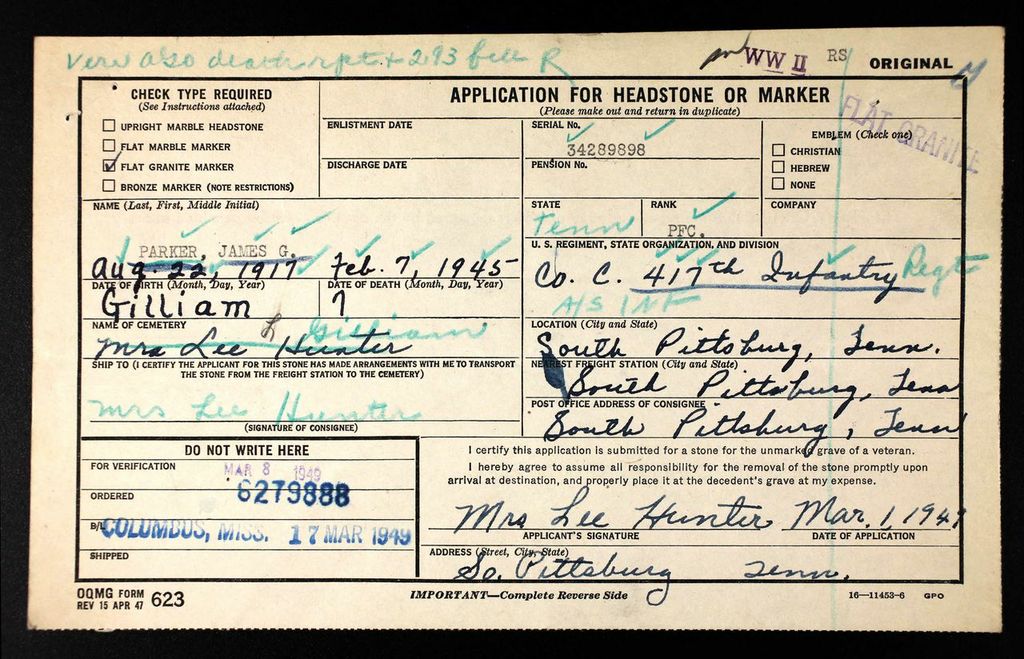 Veri also death rpt + 293 file R
WW II RS ORIGINAL
FLAT GRANITE
CHECK TYPE REQUIRED
(See Instructions attached)
UPRIGHT MARBLE HEADSTONE
FLAT MARBLE MARKER
FLAT GRANITE MARKER
BRONZE MARKER (NOTE RESTRICTIONS)
APPLICATION FOR HEADSTONE OR MARKER
(Please make out and return in duplicate)
ENLISTMENT DATE
DISCHARGE DATE
SERIAL No.
34289898
PENSION No.
EMBLEM (Check one)
CHRISTIAN
HEBREW
NONE
NAME (Last, First, Middle Initial)
PARKER, JAMES G.
STATE
Tenn
RANK
PFC.
COMPANY
Aug. 22, 1917 Feb. 7, 1945
DATE OF BIRTH (Month, Day, Year) DATE OF DEATH (Month, Day, Year)
U. S. REGIMENT, STATE ORGANIZATION, AND DIVISION
Co. C. 417th Infantry Regt
A/S INF
Gilliam
NAME OF CEMETERY
Gilliam
LOCATION (City and State)
South Pittsburg, Tenn.
Mrs Lee Hunter
SHIP TO (I CERTIFY THE APPLICANT FOR THIS STONE HAS MADE ARRANGEMENTS WITH ME TO TRANSPORT
THE STONE FROM THE FREIGHT STATION TO THE CEMETERY)
NEAREST FREIGHT STATION (City and State)
South Pittsburg, Tenn
POST OFFICE ADDRESS OF CONSIGNEE
South Pittsburg, Tenn
Mrs Lee Hunter
(SIGNATURE OF CONSIGNEE)
DO NOT WRITE HERE
FOR VERIFICATION
MAR 8 1949
ORDERED
6279888
B/L
COLUMBUS, MISS. 17 MAR 1949
SHIPPED
I certify this application is submitted for a stone for the unmarked grave of a veteran.
I hereby agree to assume all responsibility for the removal of the stone promptly upon
arrival at destination, and properly place it at the decedent's grave at my expense.
Mrs Lee Hunter Mar. 1, 1949
APPLICANT'S SIGNATURE DATE OF APPLICATION
ADDRESS (Street, City, State)
So. Pittsburg Tenn.
OQMG FORM
REV 15 APR 47 623
IMPORTANT—Complete Reverse Side
16—11453-6 GPO